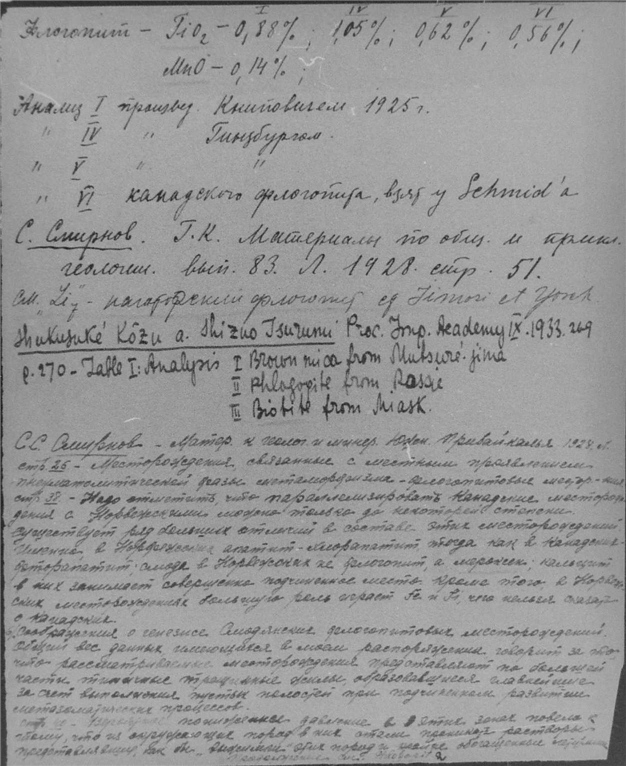 I IV V VI
Флогопит – TiO2 – 0,88%; 1,05%; 0,62%; 0,56%;
MnO – 0,14%;
Анализ I произвед. Книповичем 1925 г.
" IV " Гинзбургом.
" V " "
" VI канадского флогопита, взят у Schmid'а
С. Смирнов. Г.К. Материалы по общ. и прикл.
геологии. вып. 83. Л. 1928. стр. 51.
см. флогопит Simori et York
Shukusuké Kôzu a. Shizuo Tsurumi Proc. Imp. Academy IX. 1933. 269
p. 270 – Table I: Analysis I Brown mica from Mutsuré-jima
II Phlogopite from
III Biotite from Miask.
С.С. Смирнов – Матер. к геолог. и минер. Южн. Прибайкалья 1928. Л.
стр. 25 – Месторождения, связанные с местным проявлением
пневматолитической фазы метаморфизма – флогопитовые
стр. 38. – Надо отметить, что параллелизировать Канадские месторож-
дения с Норвежскими можно только до некоторой степени.
Существует ряд больших отличий в составе этих месторождений
Именно в Норвежских апатит – хлорапатит, тогда как в Канадских
фторапатит; слюда в Норвежских не флогопит, а ; кальцит
в них занимает совершенно подчиненное место. Кроме того в Норвеж-
ских месторождениях большую роль играет Fe и Ti, чего нельзя сказать
о канадских.
Соображения о генезисе Слюдянских флогопитовых месторождений.
вес данных, имеющихся в моем распоряжении говорит за то
что рассматриваемые месторождения представляют по большей
части типичные трещинные жилы, образовавшиеся главнейше
за счет выполнения пустых полостей при подчиненном развитии
метазоматических процессов.
пониженное давление в этих зонах повело к
тому, что из окружающих пород в них стали проникать растворы
представлявшие как бы пород и обогащенные
2